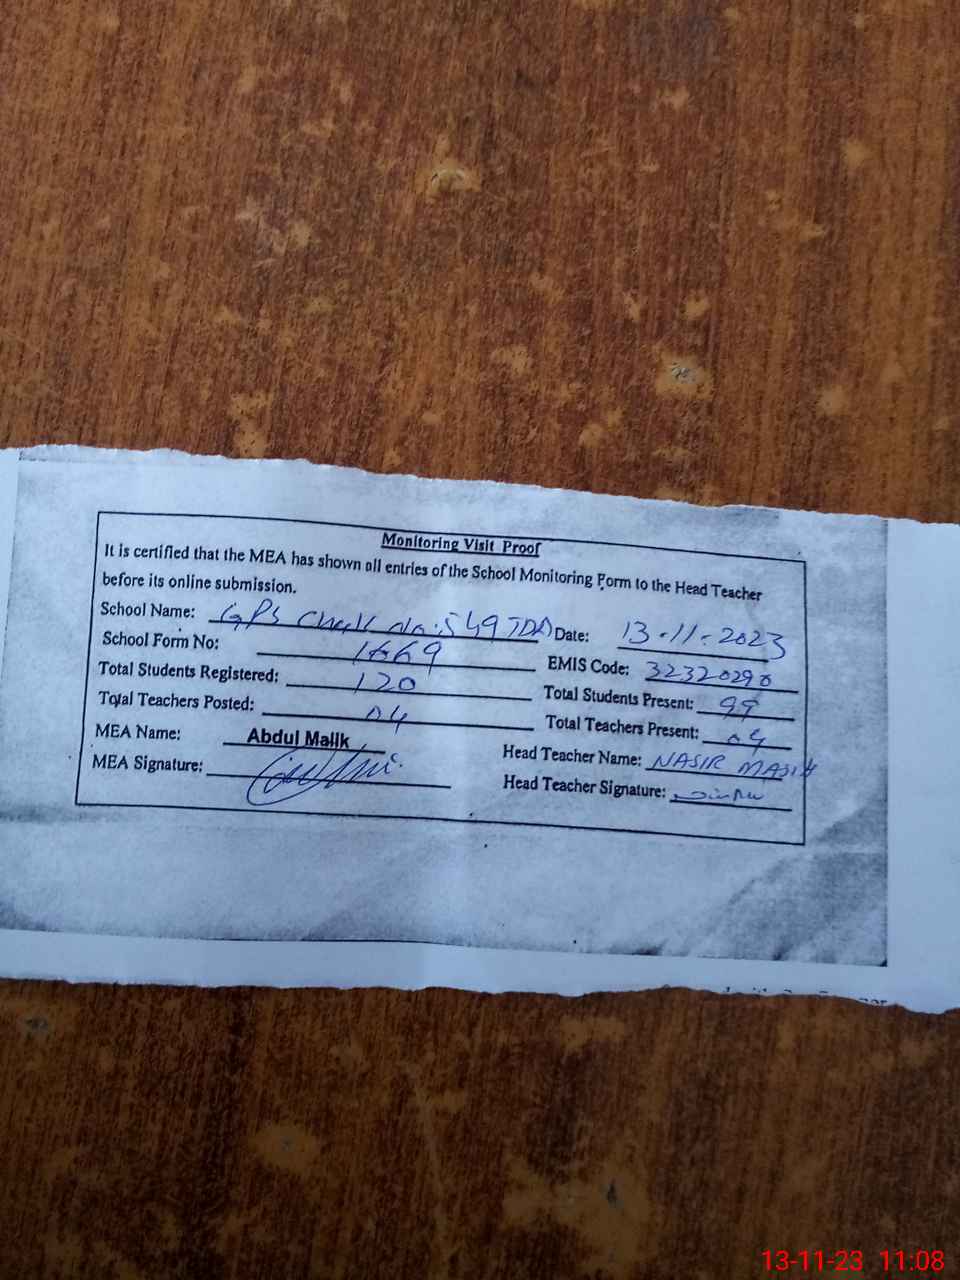 Monitoring Visit Proof
It is certified that the MEA has shown all entries of the School Monitoring Form to the Head Teacher
before its online submission.
School Name: GPS Chak No: 549 TDA Date: 13-11-2023
School Form No: 1669 EMIS Code: 32320290
Total Students Registered: 120 Total Students Present: 99
Total Teachers Posted: 04 Total Teachers Present: 04
MEA Name: Abdul Malik Head Teacher Name: NASIR MASIH
MEA Signature: Head Teacher Signature:
13-11-23 11:08